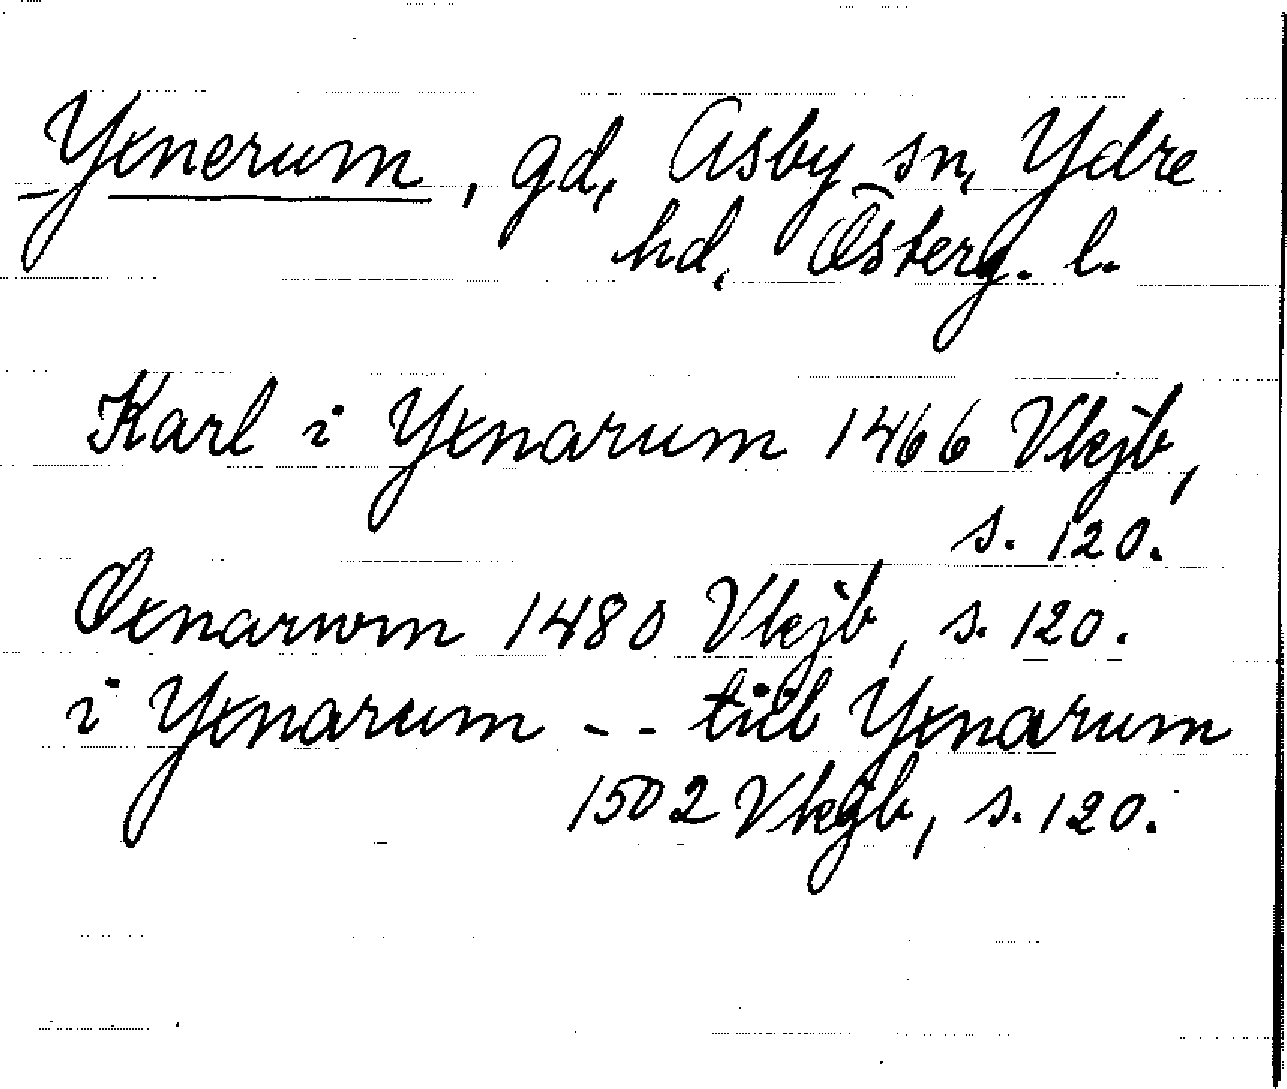 Yxnerum, gd, Asby sn, Ydre
hd, Österg. l.
Karl i Yxnarum 1466 Vkjb,
s. 120.
Øxnarwm 1480 Vkjb, s. 120.
i Yxnarum -- till Yxnarum
1502 Vkjb, s. 120.